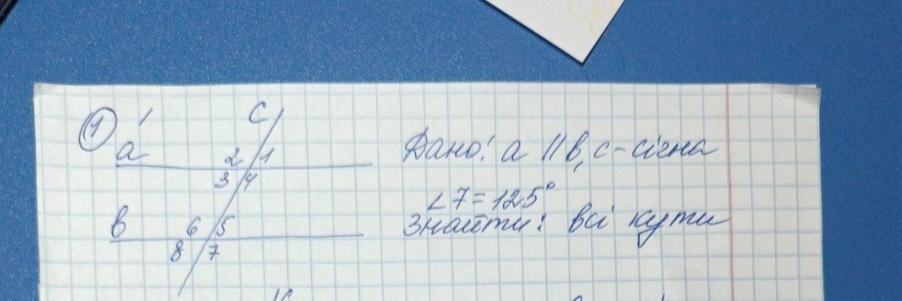 1 c
a 2 1 Дано: a || b, c - січна
3 4
∠7 = 125°
b 6 5 Знайти: всі кути
8 7